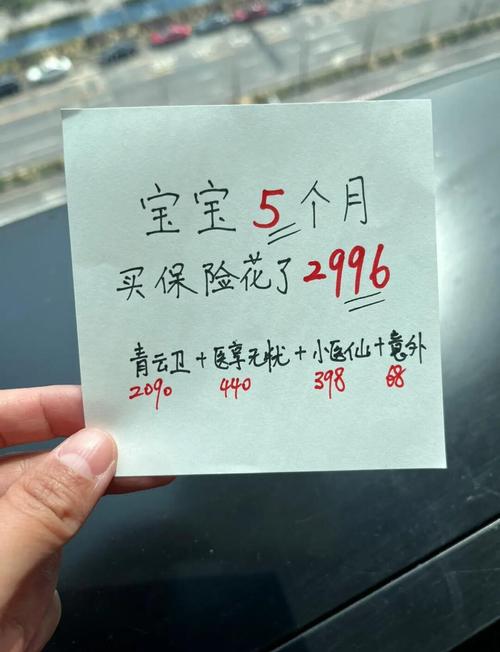 宝宝5个月
买保险花了2996
青云卫+医享无忧+小医仙+意外
2090 440 398 68